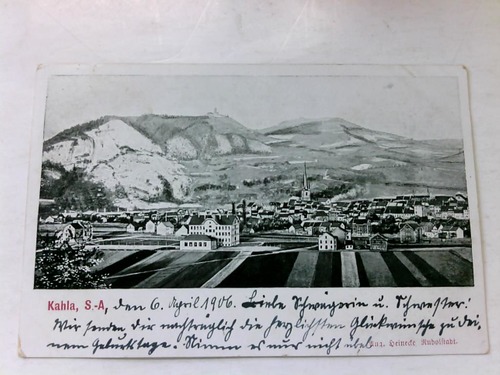 Kahla, S.-A., den 6. April 1906. Liebe Schwägerin u. Schwester!
Wir senden dir nachträglich die herzlichsten Glückwünsche zu dei-
nem Geburtstage. Nimm es nur nicht übel
Aug. Heincke Rudolstadt.